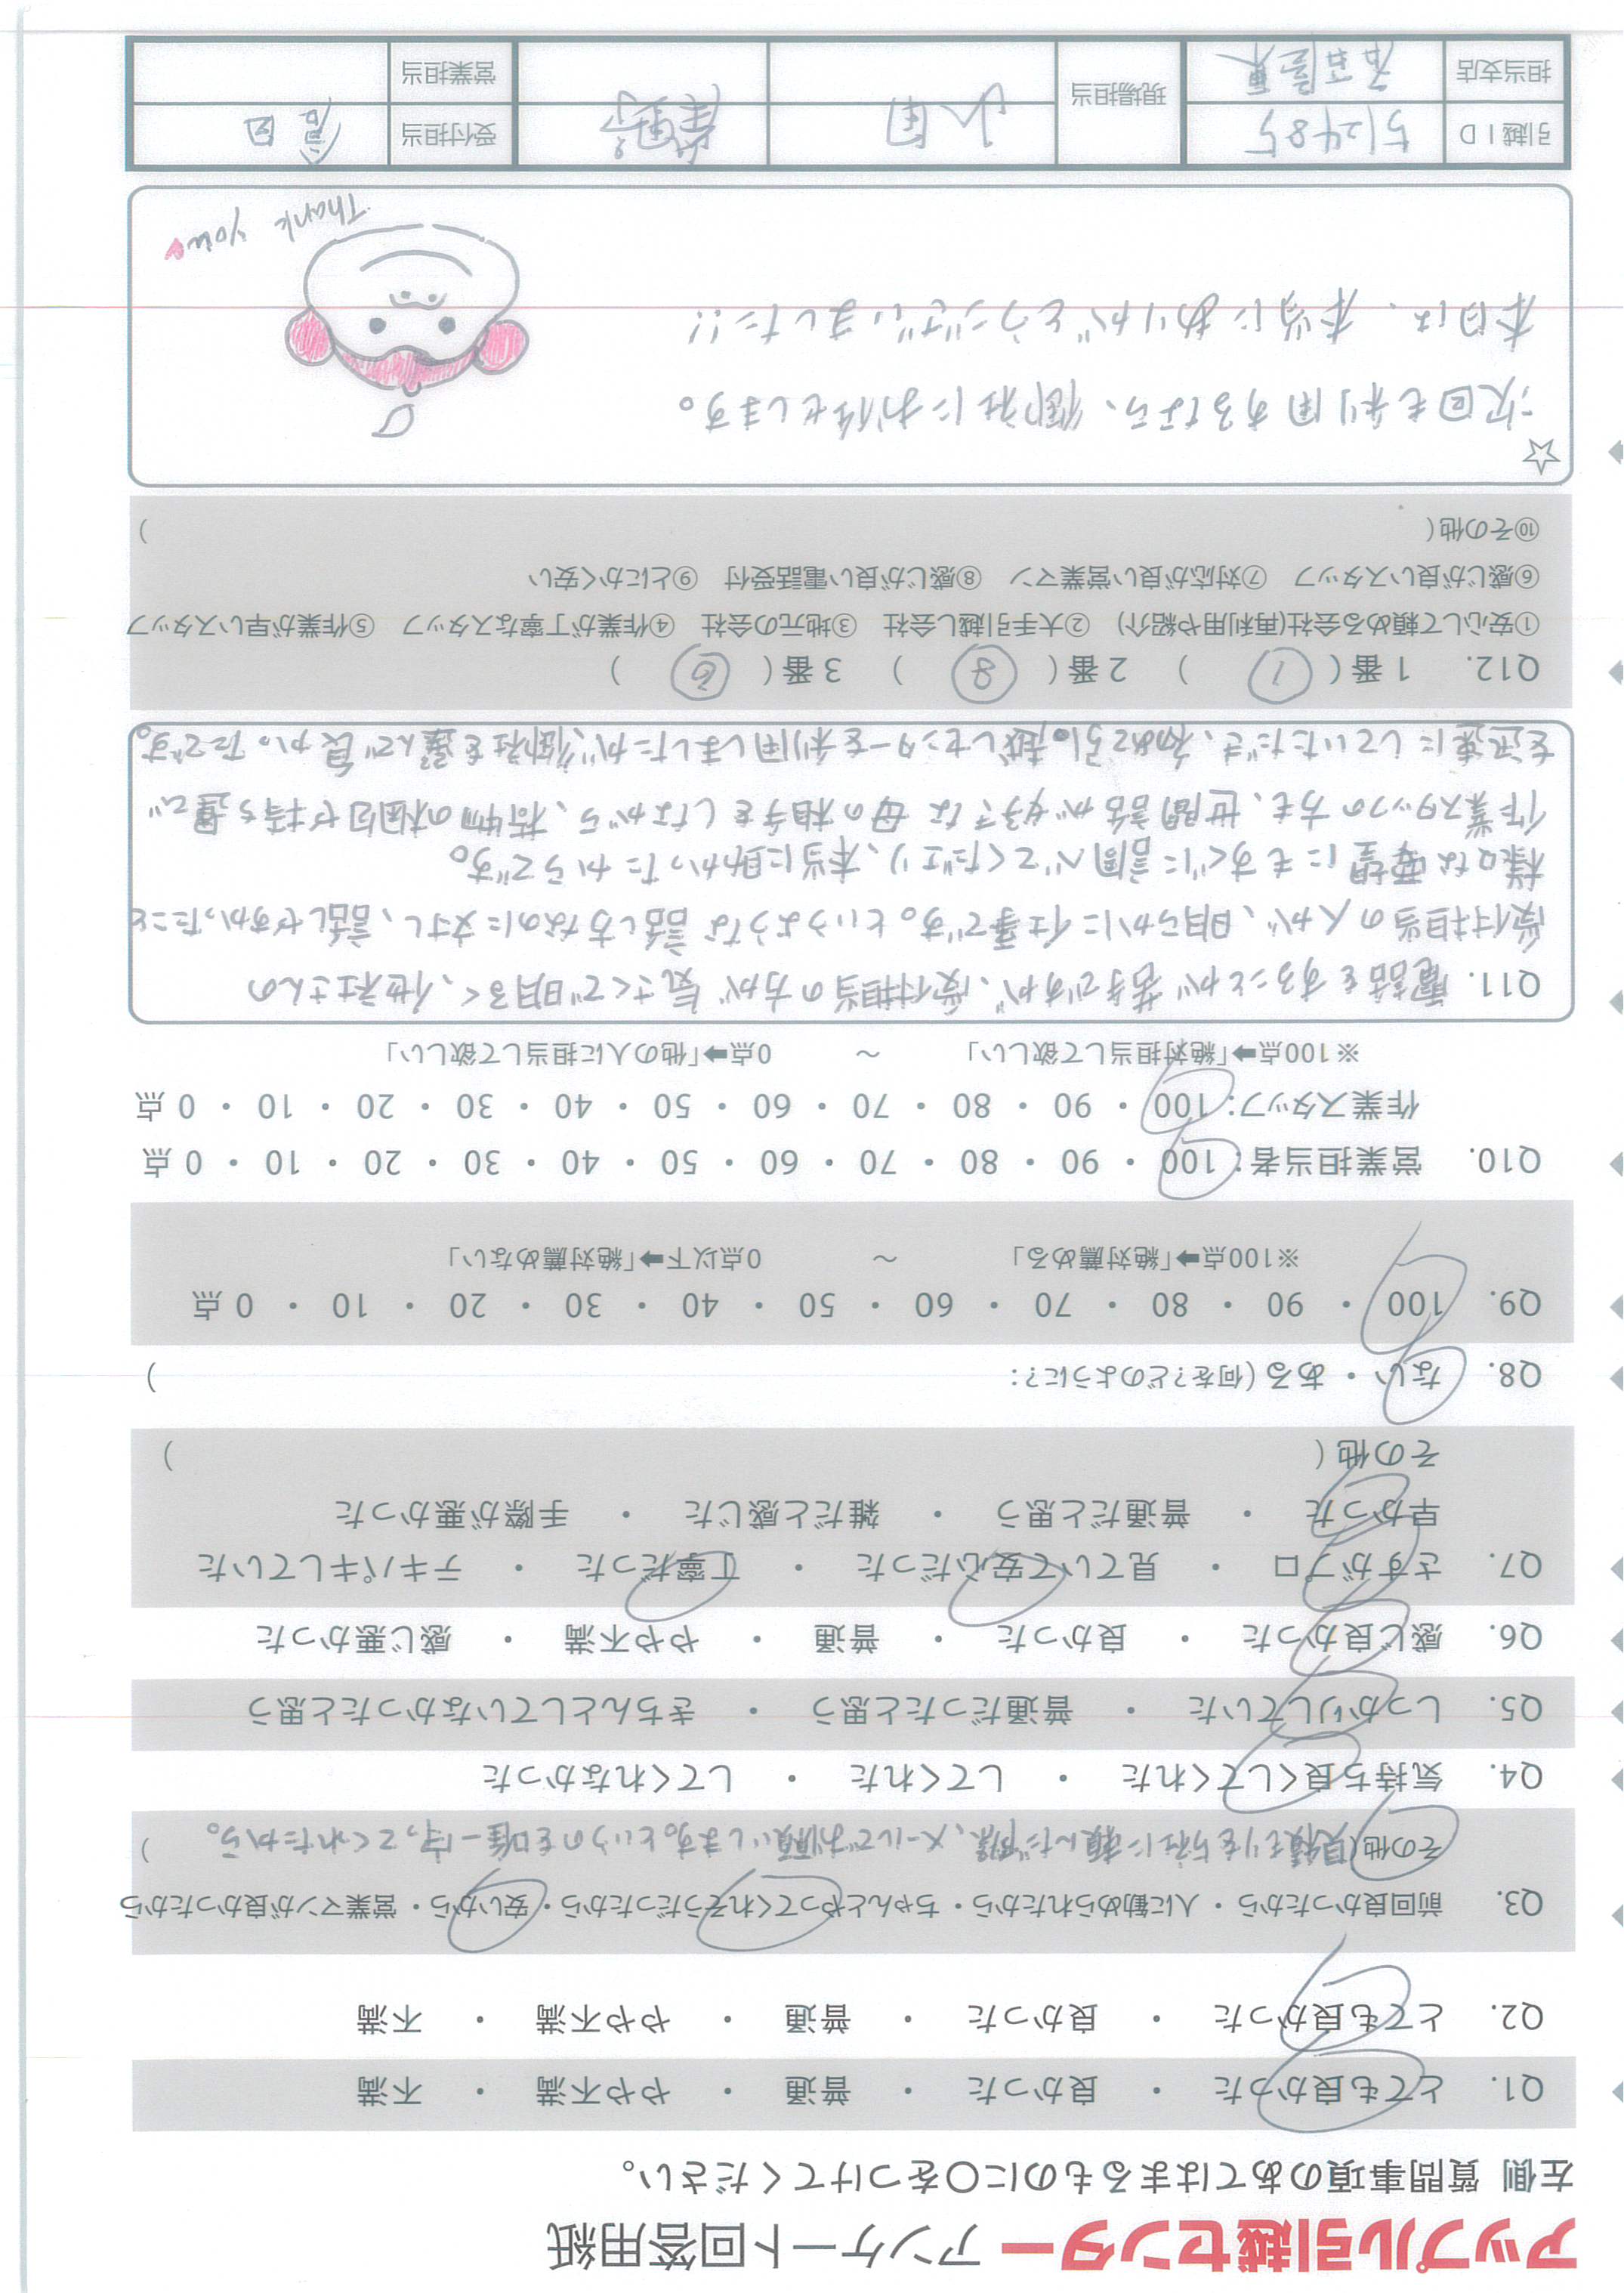 アップル引越センター アンケート回答用紙
左側 質問事項のあてはまるものに○をつけてください。
Q1. とても良かった ・ 良かった ・ 普通 ・ やや不満 ・ 不満
Q2. とても良かった ・ 良かった ・ 普通 ・ やや不満 ・ 不満
Q3. 前回良かったから ・ 人に勧められたから ・ ちゃんとやってくれそうだったから ・ 安いから ・ 営業マンが良かったから
その他(見積りを5社に頼んだ際、メールでお願いします。というのを唯一守ってくれたから。)
Q4. 気持ち良くしてくれた ・ してくれた ・ してくれなかった
Q5. しっかりしていた ・ 普通だったと思う ・ きちんとしていなかったと思う
Q6. 感じ良かった ・ 良かった ・ 普通 ・ やや不満 ・ 感じ悪かった
Q7. さすがプロ ・ 見ていて安心だった ・ 丁寧だった ・ テキパキしていた
早かった ・ 普通だと思う ・ 雑だと感じた ・ 手際が悪かった
その他( )
Q8. ない ・ ある(何を?どのように?: )
Q9. 100 ・ 90 ・ 80 ・ 70 ・ 60 ・ 50 ・ 40 ・ 30 ・ 20 ・ 10 ・ 0点
※100点➡「絶対薦める」 ～ 0点以下➡「絶対薦めない」
Q10. 営業担当者: 100 ・ 90 ・ 80 ・ 70 ・ 60 ・ 50 ・ 40 ・ 30 ・ 20 ・ 10 ・ 0点
作業スタッフ: 100 ・ 90 ・ 80 ・ 70 ・ 60 ・ 50 ・ 40 ・ 30 ・ 20 ・ 10 ・ 0点
※100点➡「絶対担当して欲しい」 ～ 0点➡「他の人に担当して欲しい」
Q11. 電話をすることが苦手ですが、受付担当の方が気さくで明るく、他社さんの
受付担当の人が、明らかに仕事です。というような話し方なのに対し、話しやすかったこと
様々な要望にもすぐに調べてくださり、本当に助かったからです。
作業スタッフの方も、世間話が好きな母の相手をしながら、荷物の梱包や持ち運び
を迅速にしていただき、初めて引っ越しセンターを利用しましたが、御社を選んで良かったです。
Q12. 1番( ① ) 2番( ⑧ ) 3番( ⑥ )
①安心して頼める会社(再利用や紹介) ②大手引越し会社 ③地元の会社 ④作業が丁寧なスタッフ ⑤作業が早いスタッフ
⑥感じが良いスタッフ ⑦対応が良い営業マン ⑧感じが良い電話受付 ⑨とにかく安い
⑩その他( )
☆
次回も利用するなら、御社にお任せします。
本日は、本当にありがとうございました!!
Thank you
引越ID 512485 現場担当 小国 受付担当 倉田
担当支店 名古屋東 営業担当